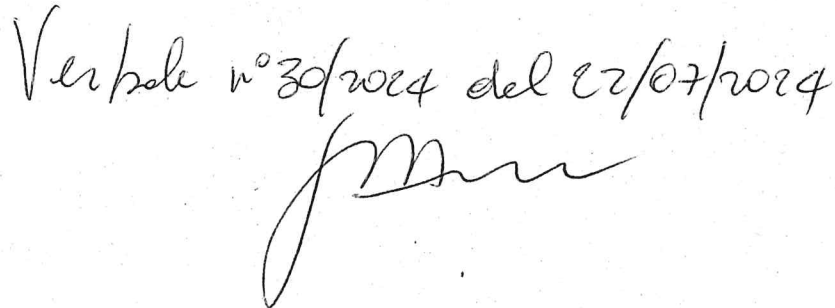 Verbale n°30/2024 del 22/07/2024